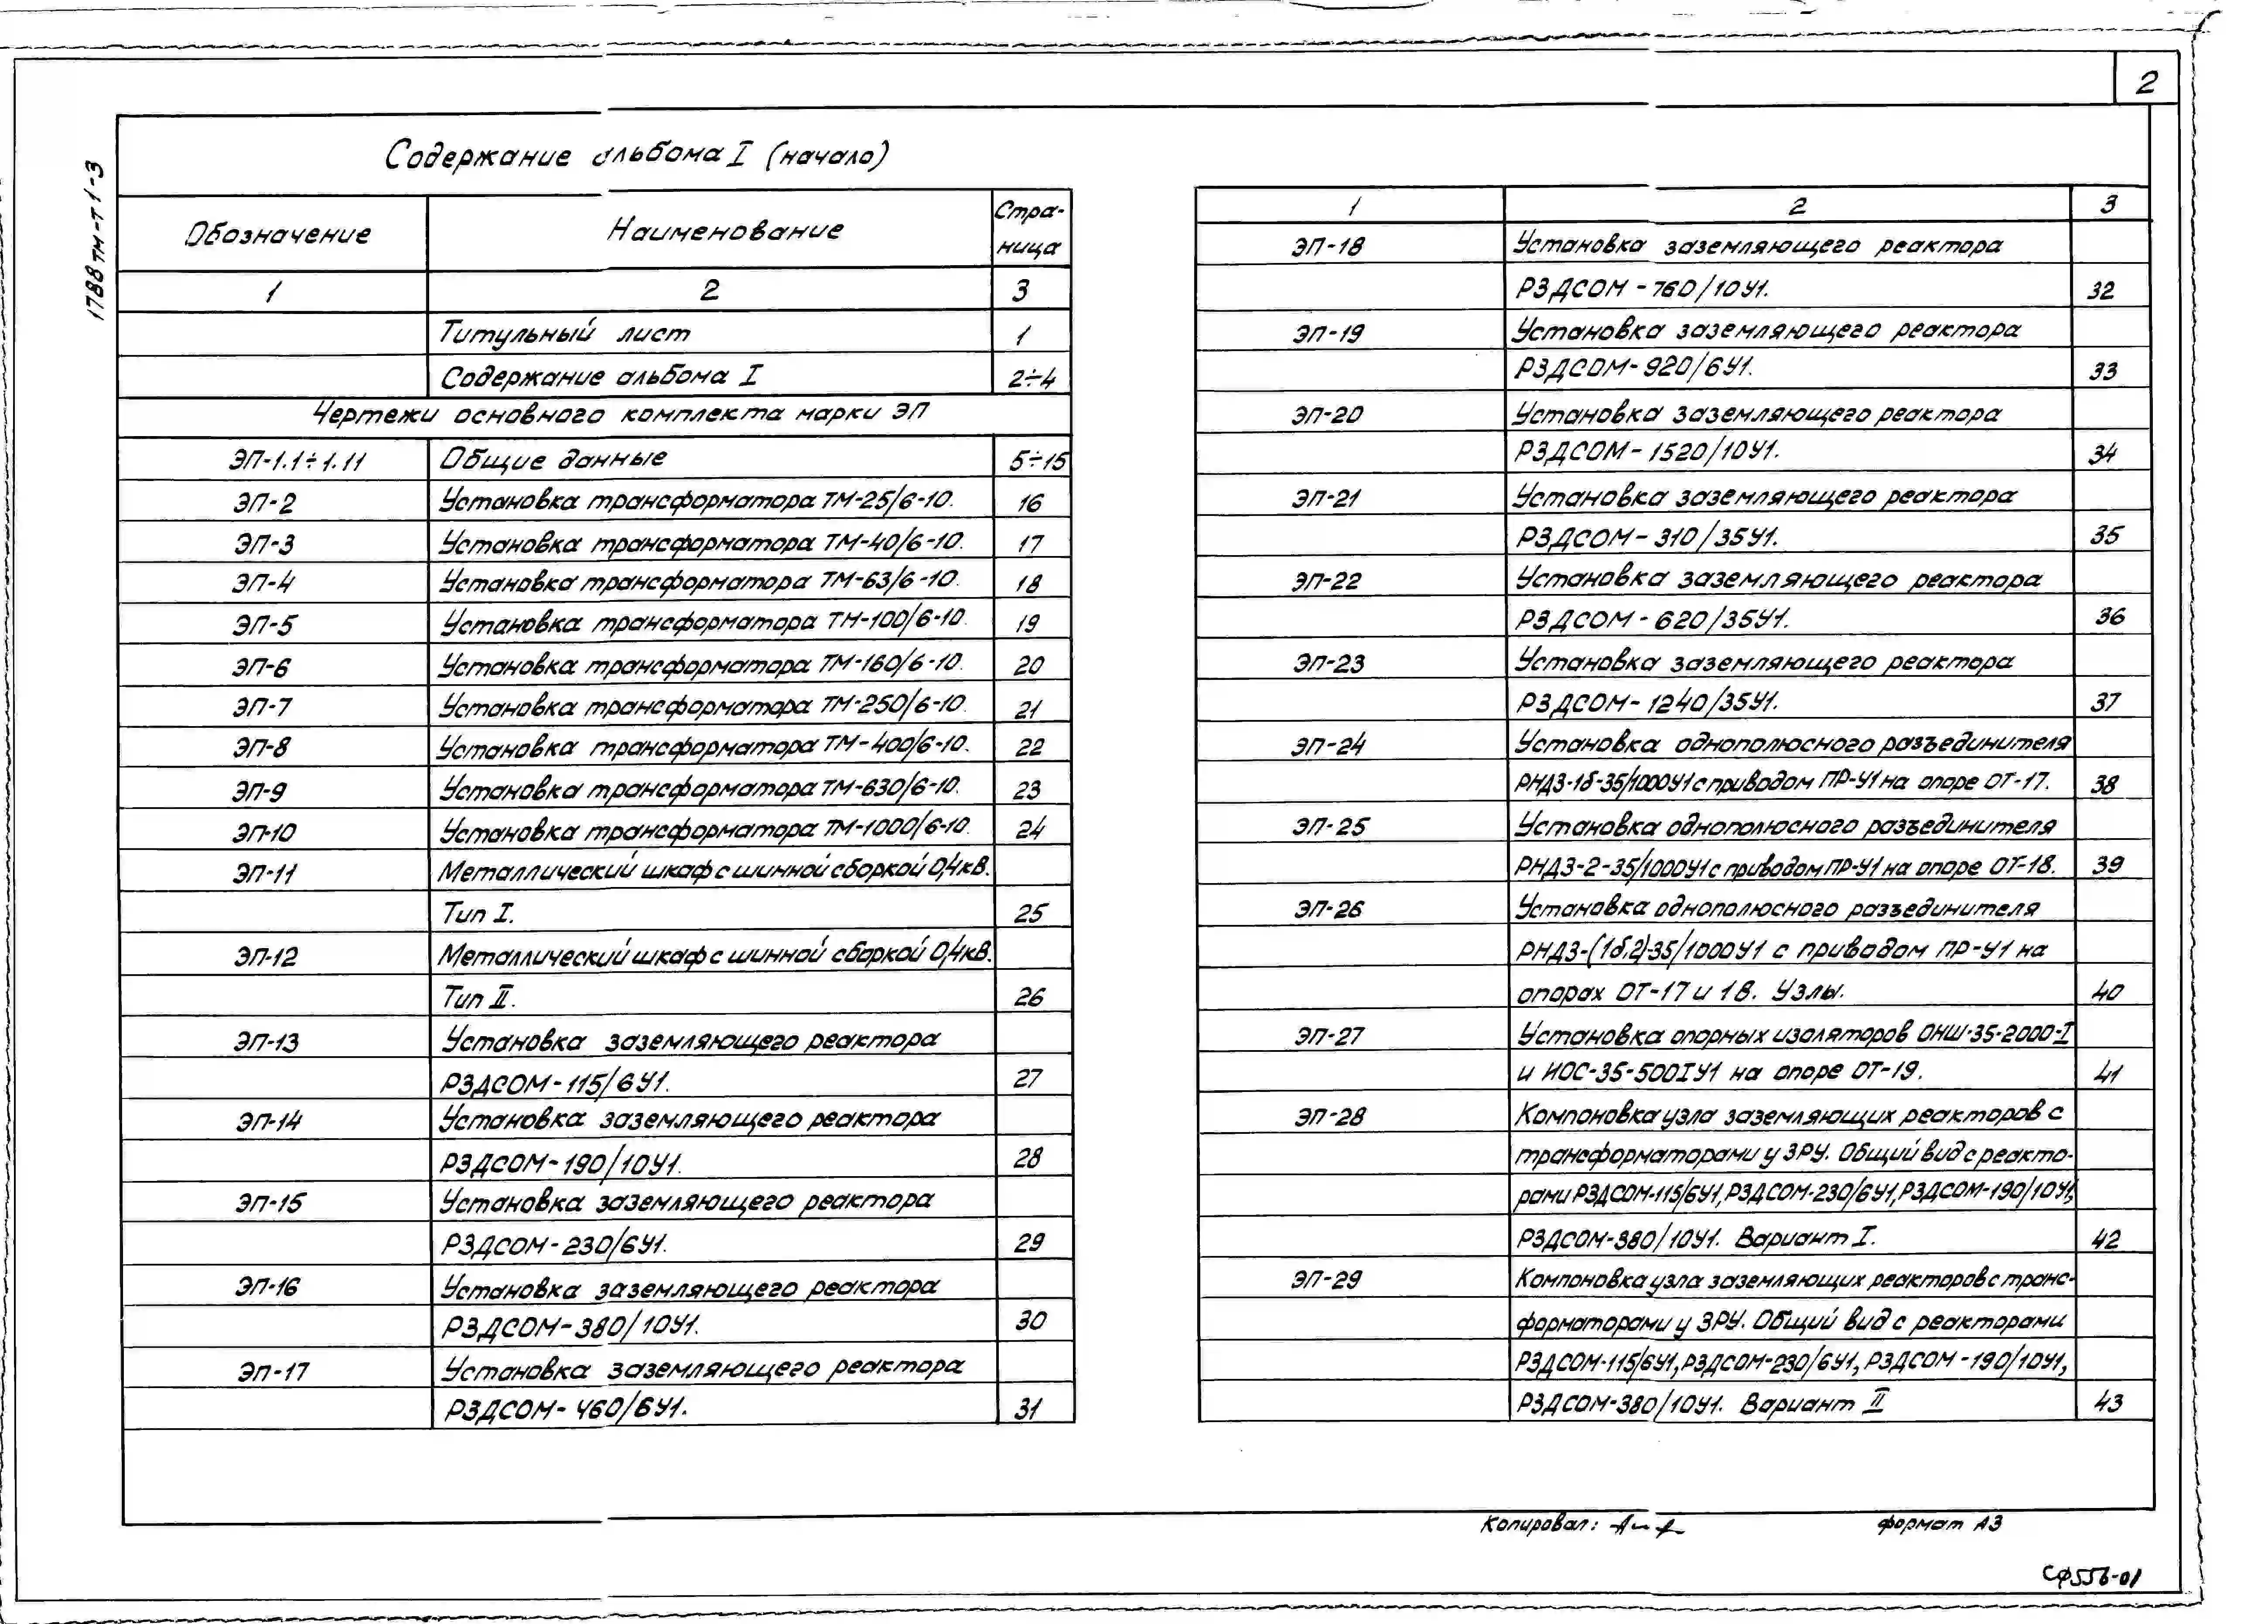 2
1788тм-т1-3
Содержание альбома I (начало)
Обозначение Наименование Стра-
ница
1 2 3
Титульный лист 1
Содержание альбома I 2÷4
Чертежи основного комплекта марки ЭП
ЭП-1.1÷1.11 Общие данные 5÷15
ЭП-2 Установка трансформатора ТМ-25/6-10. 16
ЭП-3 Установка трансформатора ТМ-40/6-10. 17
ЭП-4 Установка трансформатора ТМ-63/6-10. 18
ЭП-5 Установка трансформатора ТМ-100/6-10 19
ЭП-6 Установка трансформатора ТМ-160/6-10. 20
ЭП-7 Установка трансформатора ТМ-250/6-10. 21
ЭП-8 Установка трансформатора ТМ-400/6-10. 22
ЭП-9 Установка трансформатора ТМ-630/6-10. 23
ЭП-10 Установка трансформатора ТМ-1000/6-10. 24
ЭП-11 Металлический шкаф с шинной сборкой 0,4кВ.
Тип I. 25
ЭП-12 Металлический шкаф с шинной сборкой 0,4кВ.
Тип II. 26
ЭП-13 Установка заземляющего реактора
РЗДСОМ-115/6У1. 27
ЭП-14 Установка заземляющего реактора
РЗДСОМ-190/10У1. 28
ЭП-15 Установка заземляющего реактора
РЗДСОМ-230/6У1. 29
ЭП-16 Установка заземляющего реактора
РЗДСОМ-380/10У1. 30
ЭП-17 Установка заземляющего реактора
РЗДСОМ-460/6У1. 31
1 2 3
ЭП-18 Установка заземляющего реактора
РЗДСОМ-760/10У1. 32
ЭП-19 Установка заземляющего реактора
РЗДСОМ-920/6У1. 33
ЭП-20 Установка заземляющего реактора
РЗДСОМ-1520/10У1. 34
ЭП-21 Установка заземляющего реактора
РЗДСОМ-310/35У1. 35
ЭП-22 Установка заземляющего реактора
РЗДСОМ-620/35У1. 36
ЭП-23 Установка заземляющего реактора
РЗДСОМ-1240/35У1. 37
ЭП-24 Установка однополюсного разъединителя
РНДЗ-1б-35/1000У1 с приводом ПР-У1 на опоре ОТ-17. 38
ЭП-25 Установка однополюсного разъединителя
РНДЗ-2-35/1000У1 с приводом ПР-У1 на опоре ОТ-18. 39
ЭП-26 Установка однополюсного разъединителя
РНДЗ-(1б,2)-35/1000У1 с приводом ПР-У1 на
опорах ОТ-17 и 18. Узлы. 40
ЭП-27 Установка опорных изоляторов ОНШ-35-2000-I
и ИОС-35-500IУ1 на опоре ОТ-19. 41
ЭП-28 Компоновка узла заземляющих реакторов с
трансформаторами у ЗРУ. Общий вид с реакто-
рами РЗДСОМ-115/6У1, РЗДСОМ-230/6У1, РЗДСОМ-190/10У1,
РЗДСОМ-380/10У1. Вариант I. 42
ЭП-29 Компоновка узла заземляющих реакторов с транс-
форматорами у ЗРУ. Общий вид с реакторами
РЗДСОМ-115/6У1, РЗДСОМ-230/6У1, РЗДСОМ-190/10У1,
РЗДСОМ-380/10У1. Вариант II 43
Копировал: формат А3
СФ556-01